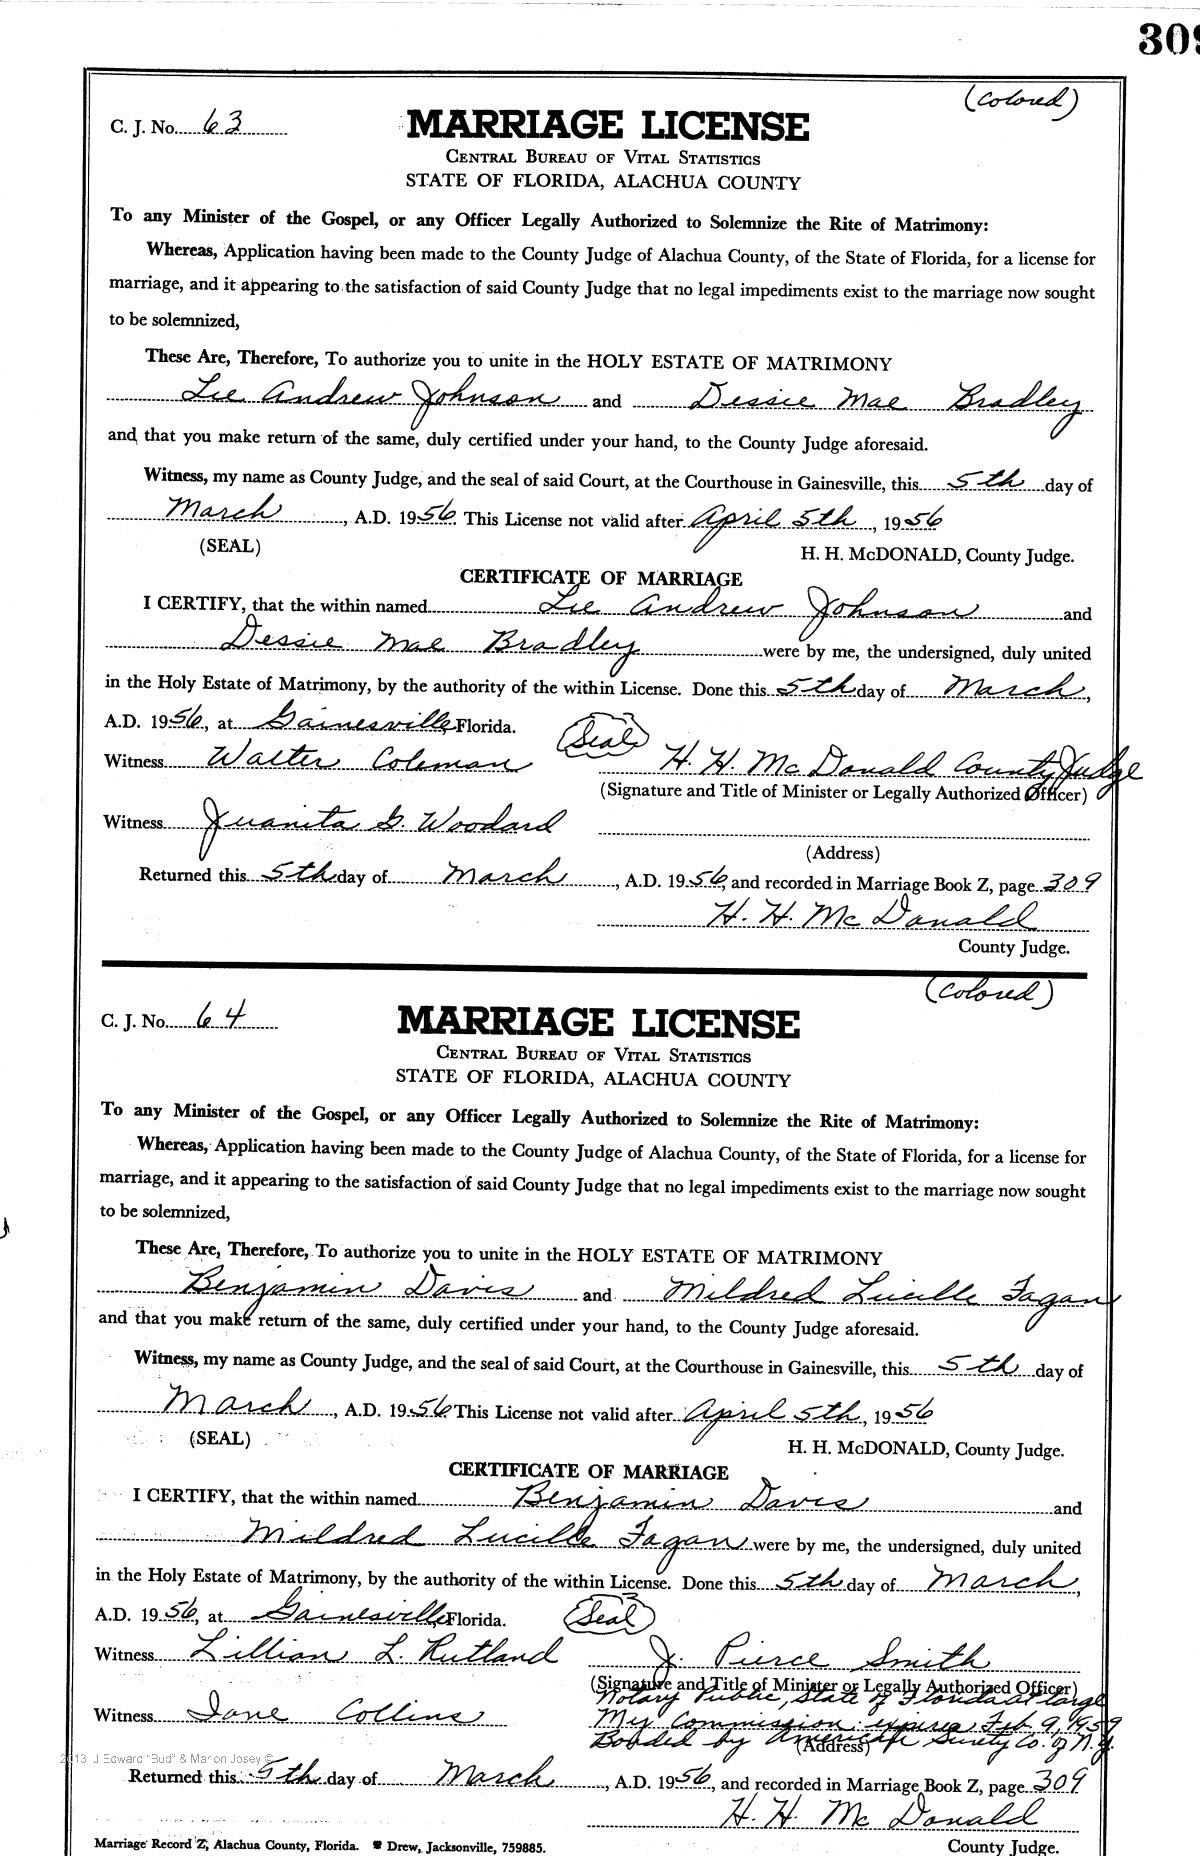 309
(Colored)
C. J. No. 63
MARRIAGE LICENSE
CENTRAL BUREAU OF VITAL STATISTICS
STATE OF FLORIDA, ALACHUA COUNTY
To any Minister of the Gospel, or any Officer Legally Authorized to Solemnize the Rite of Matrimony:
Whereas, Application having been made to the County Judge of Alachua County, of the State of Florida, for a license for
marriage, and it appearing to the satisfaction of said County Judge that no legal impediments exist to the marriage now sought
to be solemnized,
These Are, Therefore, To authorize you to unite in the HOLY ESTATE OF MATRIMONY
Lee Andrew Johnson and Dessie Mae Bradley
and that you make return of the same, duly certified under your hand, to the County Judge aforesaid.
Witness, my name as County Judge, and the seal of said Court, at the Courthouse in Gainesville, this 5th day of
March, A.D. 1956. This License not valid after April 5th, 1956
(SEAL)
H. H. McDONALD, County Judge.
CERTIFICATE OF MARRIAGE
I CERTIFY, that the within named Lee Andrew Johnson and
Dessie Mae Bradley were by me, the undersigned, duly united
in the Holy Estate of Matrimony, by the authority of the within License. Done this 5th day of March,
A.D. 1956, at Gainesville, Florida.
(Seal)
Witness Walter Coleman H. H. McDonald County Judge
(Signature and Title of Minister or Legally Authorized Officer)
Witness Juanita G. Woodard
(Address)
Returned this 5th day of March, A.D. 1956, and recorded in Marriage Book Z, page 309
H. H. McDonald
County Judge.
(Colored)
C. J. No. 64
MARRIAGE LICENSE
CENTRAL BUREAU OF VITAL STATISTICS
STATE OF FLORIDA, ALACHUA COUNTY
To any Minister of the Gospel, or any Officer Legally Authorized to Solemnize the Rite of Matrimony:
Whereas, Application having been made to the County Judge of Alachua County, of the State of Florida, for a license for
marriage, and it appearing to the satisfaction of said County Judge that no legal impediments exist to the marriage now sought
to be solemnized,
These Are, Therefore, To authorize you to unite in the HOLY ESTATE OF MATRIMONY
Benjamin Davis and Mildred Lucille Fagan
and that you make return of the same, duly certified under your hand, to the County Judge aforesaid.
Witness, my name as County Judge, and the seal of said Court, at the Courthouse in Gainesville, this 5th day of
March, A.D. 1956 This License not valid after April 5th, 1956
(SEAL)
H. H. McDONALD, County Judge.
CERTIFICATE OF MARRIAGE
I CERTIFY, that the within named Benjamin Davis and
Mildred Lucille Fagan were by me, the undersigned, duly united
in the Holy Estate of Matrimony, by the authority of the within License. Done this 5th day of March,
A.D. 1956, at Gainesville, Florida.
(Seal)
Witness Lillian L. Rutland J. Pierce Smith
(Signature and Title of Minister or Legally Authorized Officer)
Notary Public, State of Florida at large
Witness Jane Collins My Commission expires Feb. 9, 1959
Bonded by American Surety Co. of N.Y.
(Address)
2013 J Edward "Bud" & Marion Josey ©
Returned this 5th day of March, A.D. 1956, and recorded in Marriage Book Z, page 309
H. H. McDonald
Marriage Record Z, Alachua County, Florida. Drew, Jacksonville, 759885.
County Judge.